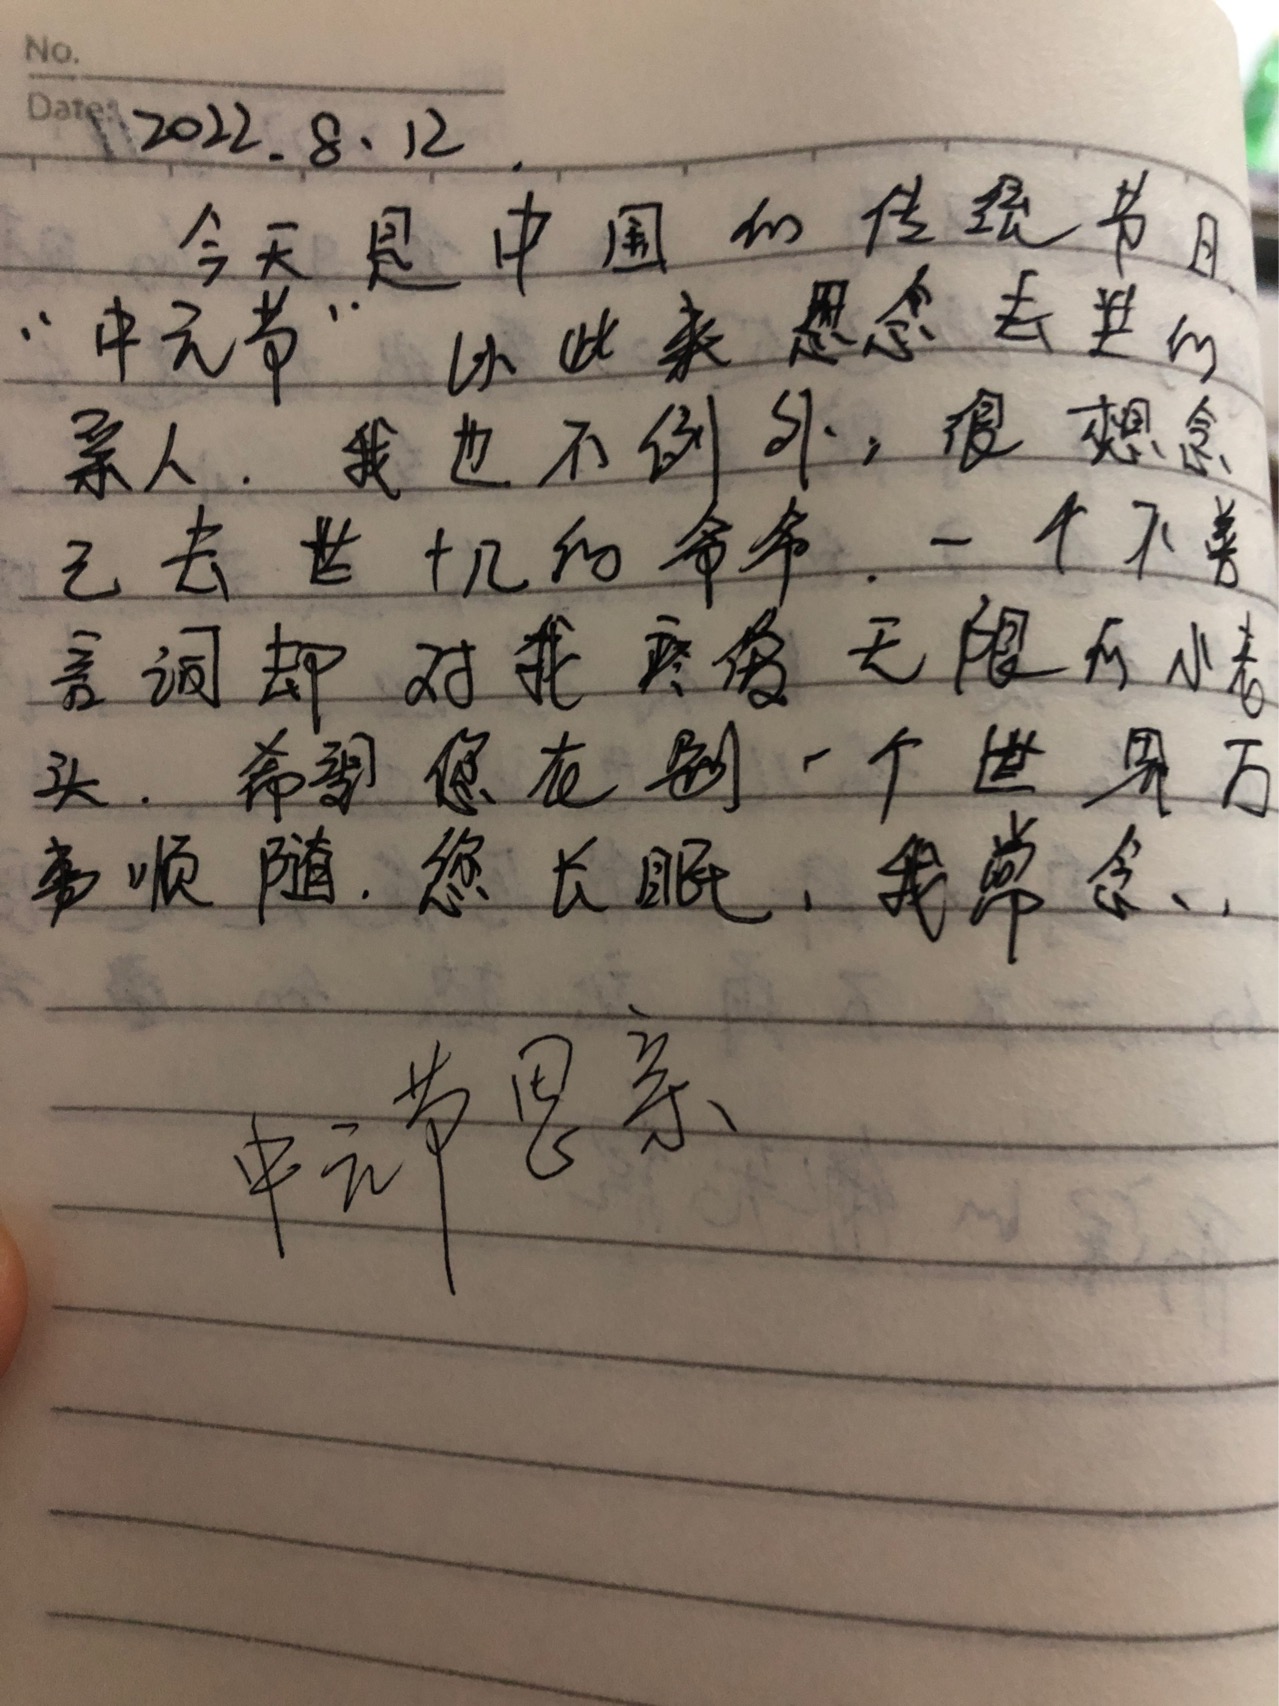 No.
Date: 2022.8.12.
今天是中国的传统节日
“中元节”以此来思念去世的
亲人.我也不例外,很想念
已去世十几的爷爷.一个不善
言词却对我疼爱无限的小老
头.希望您在别一个世界万
事顺随.您长眠,我常念..
中元节思亲